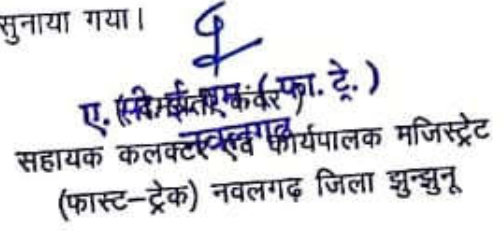 सुनाया गया।
ए. सी. ई. एम. (फा. ट्रे.)
नवलगढ़
सहायक कलक्टर एवं कार्यपालक मजिस्ट्रेट
(फास्ट-ट्रेक) नवलगढ़ जिला झुन्झुनू